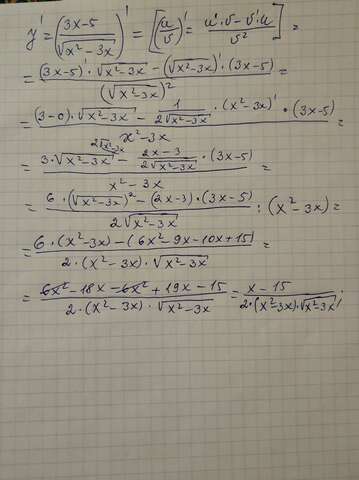 y' = ((3x-5)/√(x²-3x))' = [(u/v)' = (u'·v - v'·u)/v²] =
= ((3x-5)'·√(x²-3x) - (√(x²-3x))'·(3x-5))/(√(x²-3x))² =
= ((3-0)·√(x²-3x) - 1/(2√(x²-3x))·(x²-3x)'·(3x-5))/(x²-3x) =
2√(x²-3x)
= (3·√(x²-3x) - (2x-3)/(2√(x²-3x))·(3x-5))/(x²-3x) =
= (6·(√(x²-3x))² - (2x-3)·(3x-5))/(2√(x²-3x)) : (x²-3x) =
= (6·(x²-3x) - (6x²-9x-10x+15))/(2·(x²-3x)·√(x²-3x)) =
= (6x²-18x-6x²+19x-15)/(2·(x²-3x)·√(x²-3x)) = (x-15)/(2·(x²-3x)·√(x²-3x)).